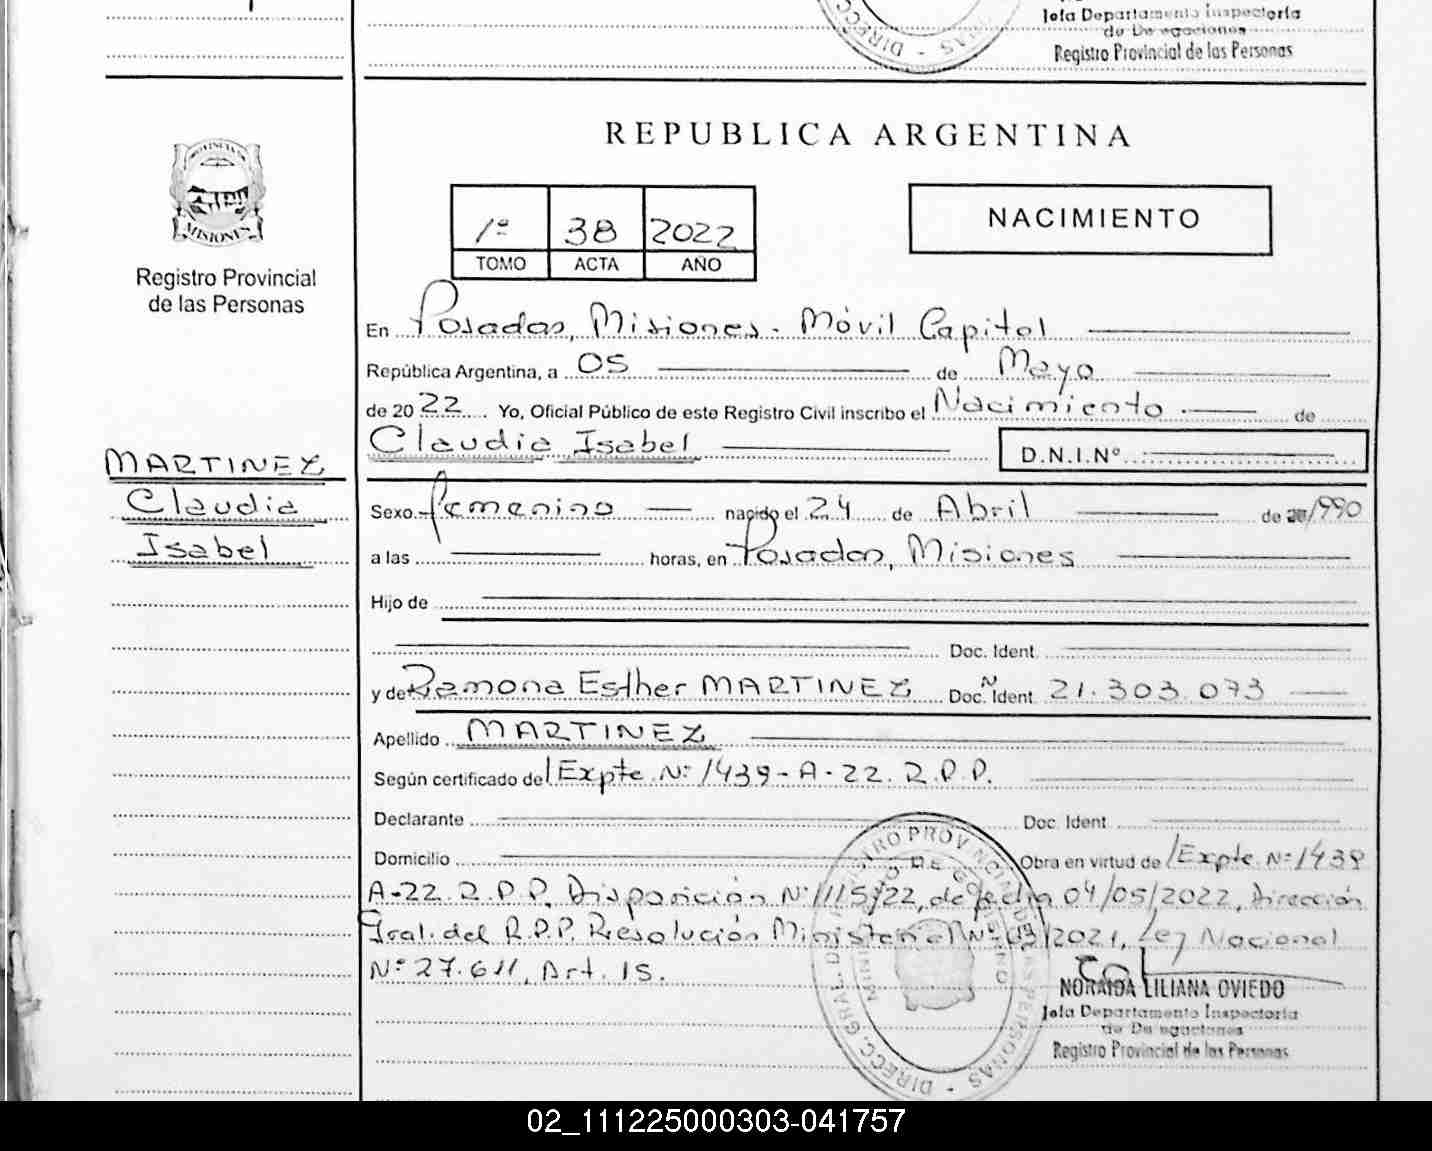 Jefa Departamento Inspectoría
de Delegaciones
Registro Provincial de las Personas
REPUBLICA ARGENTINA
PROVINCIA DE
MISIONES
Registro Provincial
de las Personas
1º 38 2022
TOMO ACTA AÑO
NACIMIENTO
En Posadas, Misiones - Móvil Capital
República Argentina, a 05 de Mayo
de 2022 Yo, Oficial Público de este Registro Civil inscribo el Nacimiento de
Claudia Isabel D.N.I.Nº
MARTINEZ
Claudia
Isabel
Sexo Femenino nacido el 24 de Abril de 1990
a las horas, en Posadas, Misiones
Hijo de
Doc. Ident.
y de Ramona Esther MARTINEZ Doc. Ident. Nº 21.303.073
Apellido MARTINEZ
Según certificado del Expte. Nº 1439-A-22. R.P.P.
Declarante Doc. Ident
Domicilio Obra en virtud del Expte. Nº 1439
A-22. R.P.P. Disposición Nº 1115/22, de fecha 04/05/2022, Dirección
Gral. del R.P.P. Resolución Ministerial Nº 03/2021, Ley Nacional
Nº 27.611, Art. 15.
NORAIDA LILIANA OVIEDO
Jefa Departamento Inspectoría
de Delegaciones
Registro Provincial de las Personas
02_111225000303-041757